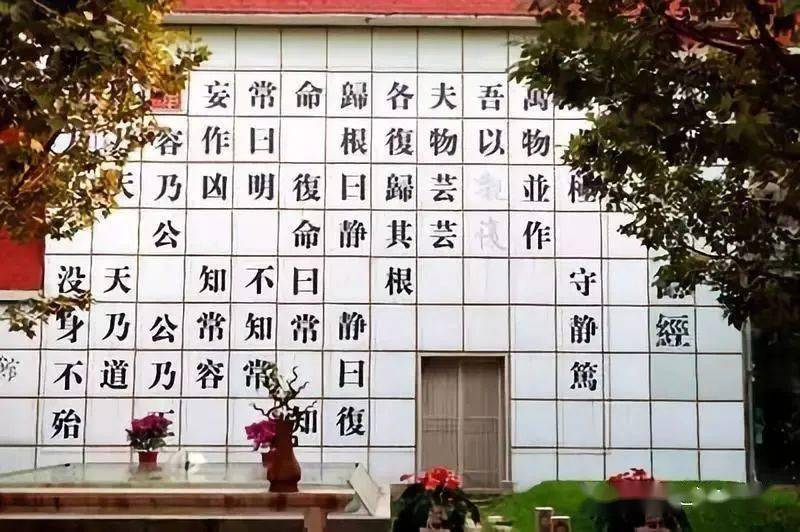 經
極 守静篤
萬物並作
吾以
夫物芸芸
各復歸其根
歸根曰静 静曰復
命 復命曰常 知
常曰明 不知常
妄作凶 知常容
容乃公 公乃
天 天乃道
没身不殆